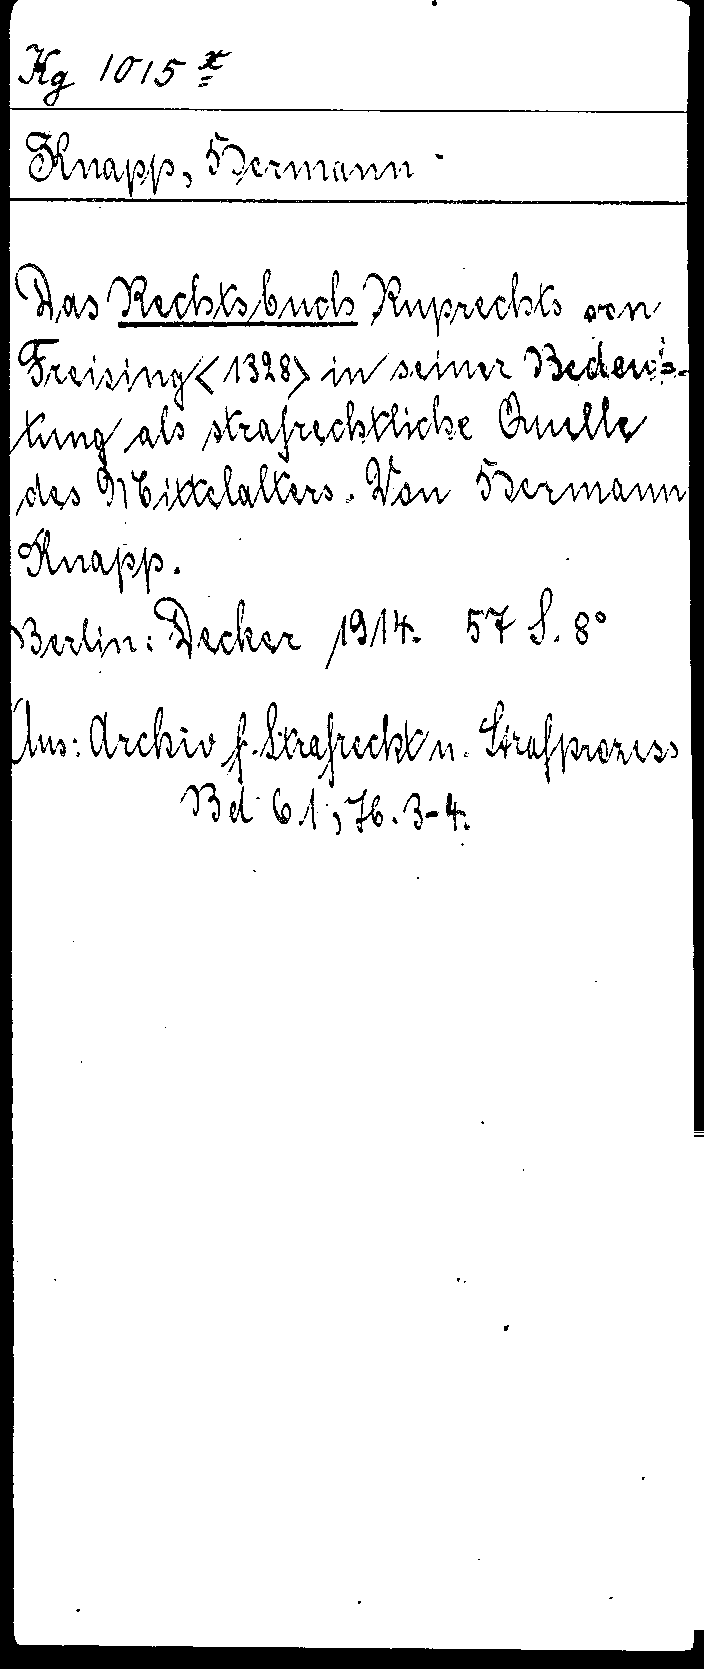 Kg 1015 x
Knapp, Hermann
Das Rechtsbuch Ruprechts von
Freising <1328> in seiner Bedeu-
tung als strafrechtliche Quelle
des Mittelalters. Von Hermann
Knapp.
Berlin: Decker 1914. 57 S. 8°
Aus: Archiv f. Strafrecht u. Strafprozess
Bd 61, H. 3-4.